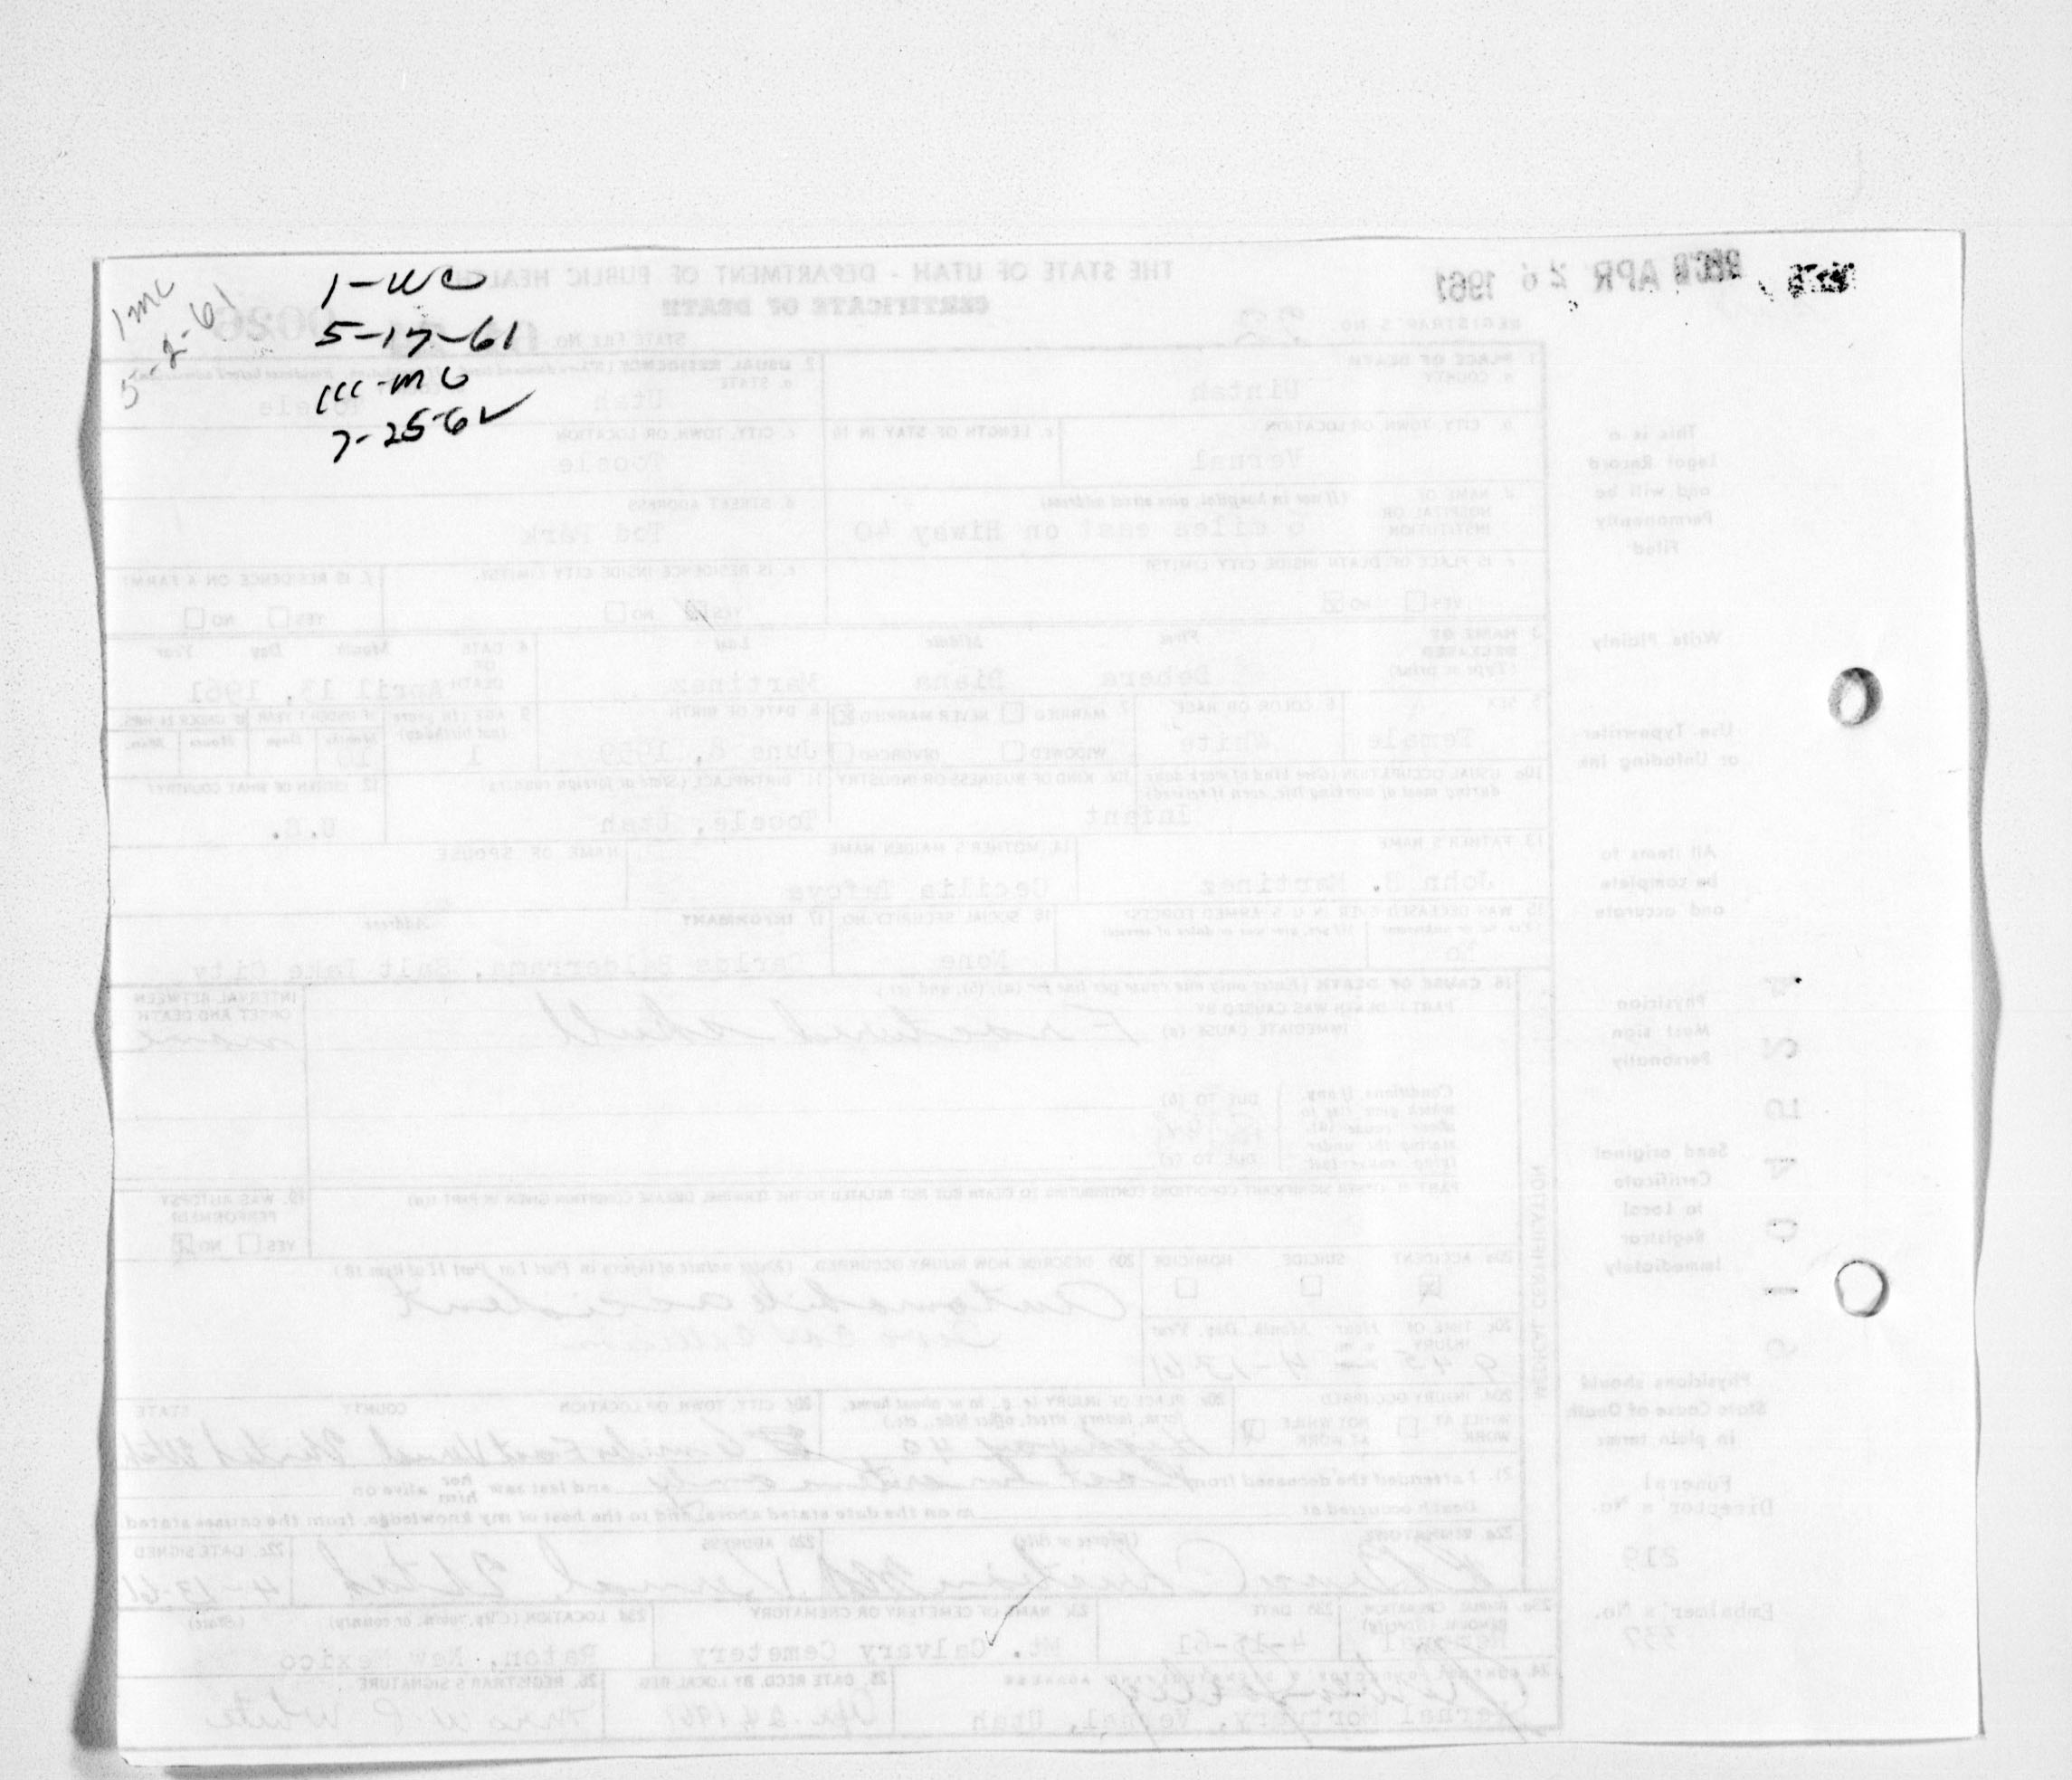 1-WC
5-17-61
1cc-mc
7-25-62
1 mc
5-2-61
REC'D APR 26 1961
THE STATE OF UTAH - DEPARTMENT OF PUBLIC HEALTH
CERTIFICATE OF DEATH
REGISTRAR'S NO.
STATE FILE NO.
1. PLACE OF DEATH
a. COUNTY
Uintah
2. USUAL RESIDENCE
a. STATE
Utah
Tooele
b. CITY, TOWN, OR LOCATION
Vernal
c. LENGTH OF STAY IN 1b
c. CITY, TOWN, OR LOCATION
Tooele
d. NAME OF HOSPITAL OR INSTITUTION
(If not in hospital, give street address)
6 miles east on Hiway 40
d. STREET ADDRESS
Tod Park
e. IS PLACE OF DEATH INSIDE CITY LIMITS?
YES NO
e. IS RESIDENCE INSIDE CITY LIMITS?
YES NO
f. IS RESIDENCE ON A FARM?
YES NO
3. NAME OF DECEASED
(Type or print)
First Middle Last
Debora Diana Martinez
4. DATE OF DEATH
Month Day Year
April 13, 1961
5. SEX
Female
6. COLOR OR RACE
White
7. MARRIED NEVER MARRIED
WIDOWED DIVORCED
8. DATE OF BIRTH
June 8, 1959
9. AGE (In years last birthday)
1
IF UNDER 1 YEAR
Months Days
10
IF UNDER 24 HRS.
Hours Min.
10a. USUAL OCCUPATION (Give kind of work done during most of working life, even if retired)
Infant
10b. KIND OF BUSINESS OR INDUSTRY
11. BIRTHPLACE (State or foreign country)
Tooele, Utah
12. CITIZEN OF WHAT COUNTRY?
U.S.
13. FATHER'S NAME
John B. Martinez
14. MOTHER'S MAIDEN NAME
Cecilia Tafoya
NAME OF SPOUSE
15. WAS DECEASED EVER IN U. S. ARMED FORCES?
(Yes, no, or unknown) (If yes, give war or dates of service)
No
16. SOCIAL SECURITY NO.
None
17. INFORMANT Address
Carlos Balderrama, Salt Lake City
18. CAUSE OF DEATH (Enter only one cause per line for (a), (b), and (c).)
PART I. DEATH WAS CAUSED BY:
IMMEDIATE CAUSE (a)
Fractured skull
INTERVAL BETWEEN ONSET AND DEATH
none
Conditions, if any, which gave rise to above cause (a), stating the underlying cause last.
DUE TO (b)
DUE TO (c)
PART II. OTHER SIGNIFICANT CONDITIONS CONTRIBUTING TO DEATH BUT NOT RELATED TO THE TERMINAL DISEASE CONDITION GIVEN IN PART I(a)
19. WAS AUTOPSY PERFORMED?
YES NO
MEDICAL CERTIFICATION
20a. ACCIDENT SUICIDE HOMICIDE
20b. DESCRIBE HOW INJURY OCCURRED. (Enter nature of injury in Part I or Part II of item 18.)
Automobile accident
Two car collision
20c. TIME OF INJURY
Hour Month, Day, Year
9 45 4-13-61
20d. INJURY OCCURRED
WHILE AT WORK NOT WHILE AT WORK
20e. PLACE OF INJURY (e. g., in or about home, farm, factory, street, office bldg., etc.)
Highway 40
20f. CITY, TOWN, OR LOCATION COUNTY STATE
6 miles East Vernal Uintah Utah
21. I attended the deceased from
and last saw her him alive on
Death occurred at
m on the date stated above, and to the best of my knowledge, from the causes stated.
22a. SIGNATURE (Degree or title)
22b. ADDRESS
Vernal, Utah
22c. DATE SIGNED
4-13-61
23a. BURIAL, CREMATION, REMOVAL (Specify)
Removal
23b. DATE
4-15-61
23c. NAME OF CEMETERY OR CREMATORY
Mt. Calvary Cemetery
23d. LOCATION (City, town, or county) (State)
Raton, New Mexico
24. FUNERAL DIRECTOR'S SIGNATURE AND ADDRESS
Vernal Mortuary, Vernal, Utah
25. DATE RECD. BY LOCAL REG.
Apr. 24 1961
26. REGISTRAR'S SIGNATURE
Mrs W P White
This is a
Legal Record
and will be
Permanently
Filed
Write Plainly
Use Typewriter
or Unfading Ink
All items to
be complete
and accurate
Physician
Must sign
Personally
Send original
Certificate
to Local
Registrar
Immediately
Physicians should
State Cause of Death
in plain terms
Funeral
Director's No.
219
Embalmer's No.
337